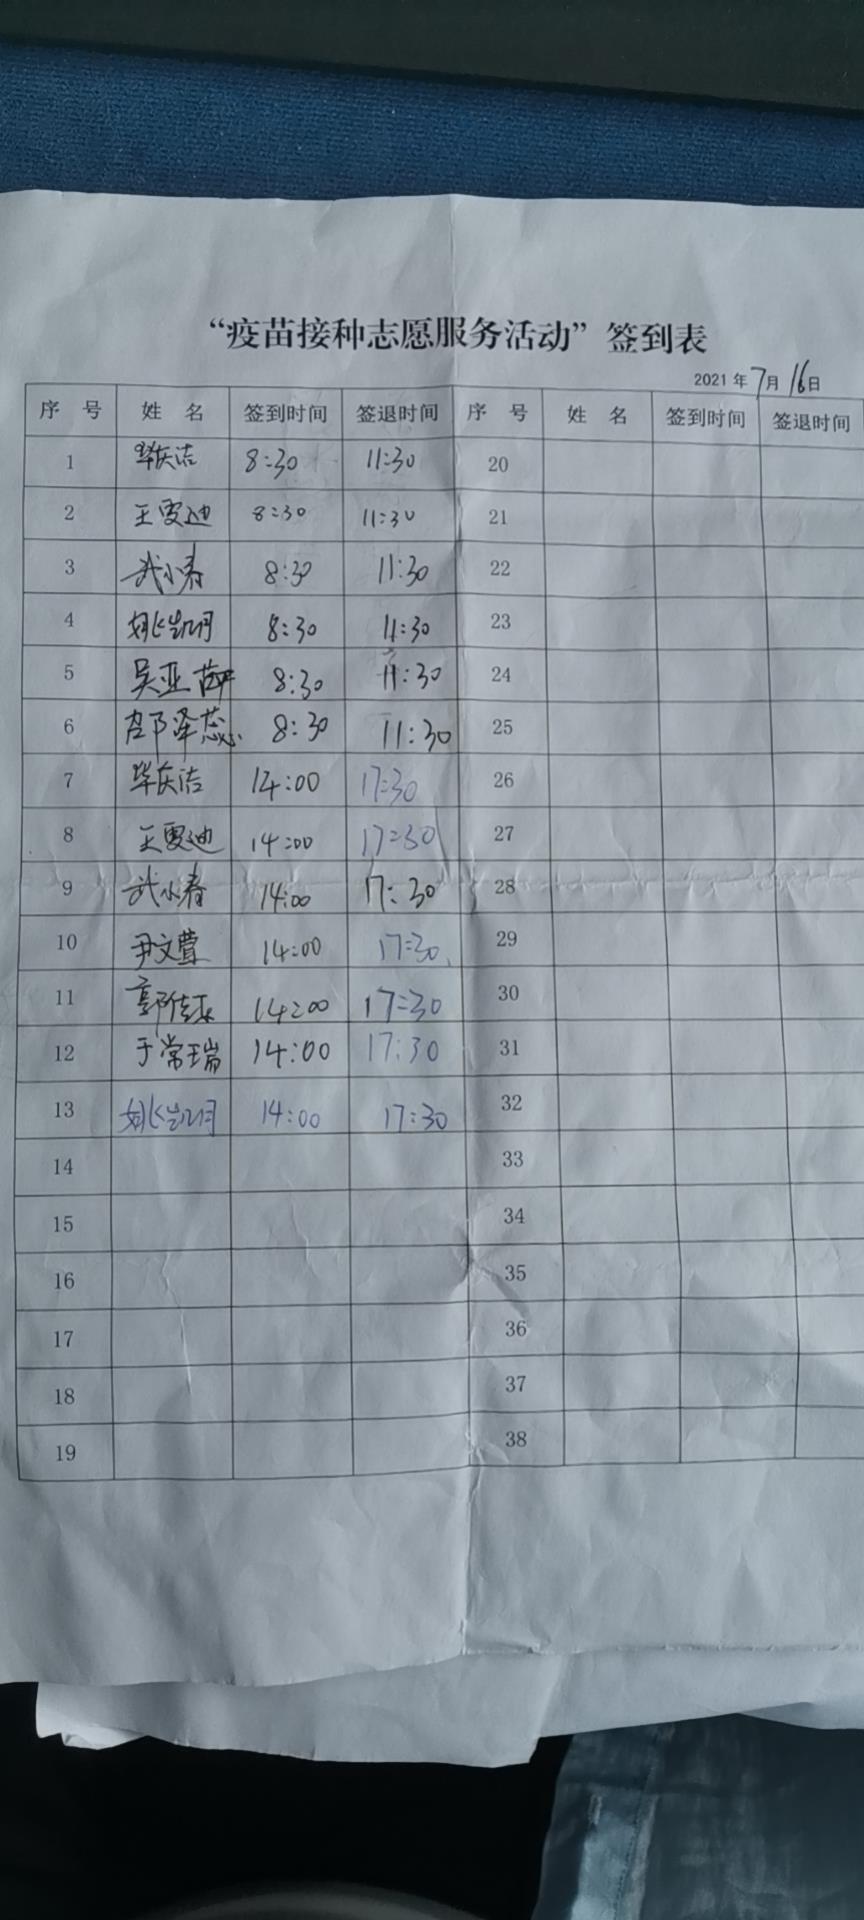 “疫苗接种志愿服务活动”签到表
2021年7月16日
序号 姓名 签到时间 签退时间 序号 姓名 签到时间 签退时间
1 毕庆洁 8:30 11:30 20
2 王雯迪 8:30 11:30 21
3 武小春 8:30 11:30 22
4 姚岂月 8:30 11:30 23
5 吴亚苹 8:30 11:30 24
6 邵泽蕊 8:30 11:30 25
7 毕庆洁 14:00 17:30 26
8 王雯迪 14:00 17:30 27
9 武小春 14:00 17:30 28
10 尹文萱 14:00 17:30 29
11 郭佳 14:00 17:30 30
12 于常瑞 14:00 17:30 31
13 姚 14:00 17:30 32
14 33
15 34
16 35
17 36
18 37
19 38